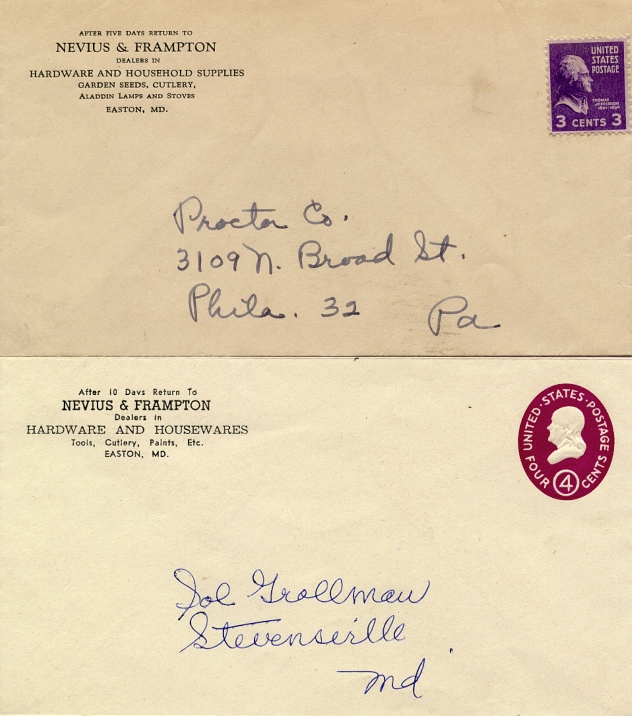 AFTER FIVE DAYS RETURN TO
NEVIUS & FRAMPTON
DEALERS IN
HARDWARE AND HOUSEHOLD SUPPLIES
GARDEN SEEDS, CUTLERY,
ALADDIN LAMPS AND STOVES
EASTON, MD.
UNITED
STATES
POSTAGE
THOMAS
JEFFERSON
1801-1809
3 CENTS 3
Proctor Co.
3109 N. Broad St.
Phila. 32 Pa
After 10 Days Return To
NEVIUS & FRAMPTON
Dealers in
HARDWARE AND HOUSEWARES
Tools, Cutlery, Paints, Etc.
EASTON, MD.
UNITED·STATES·POSTAGE
FOUR 4 CENTS
Sol Grollman
Stevensville
Md